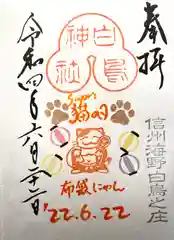 奉拝
白鳥神社
信州海野白鳥之庄
布袋にゃん
'22.6.22
令和四年六月二十二日